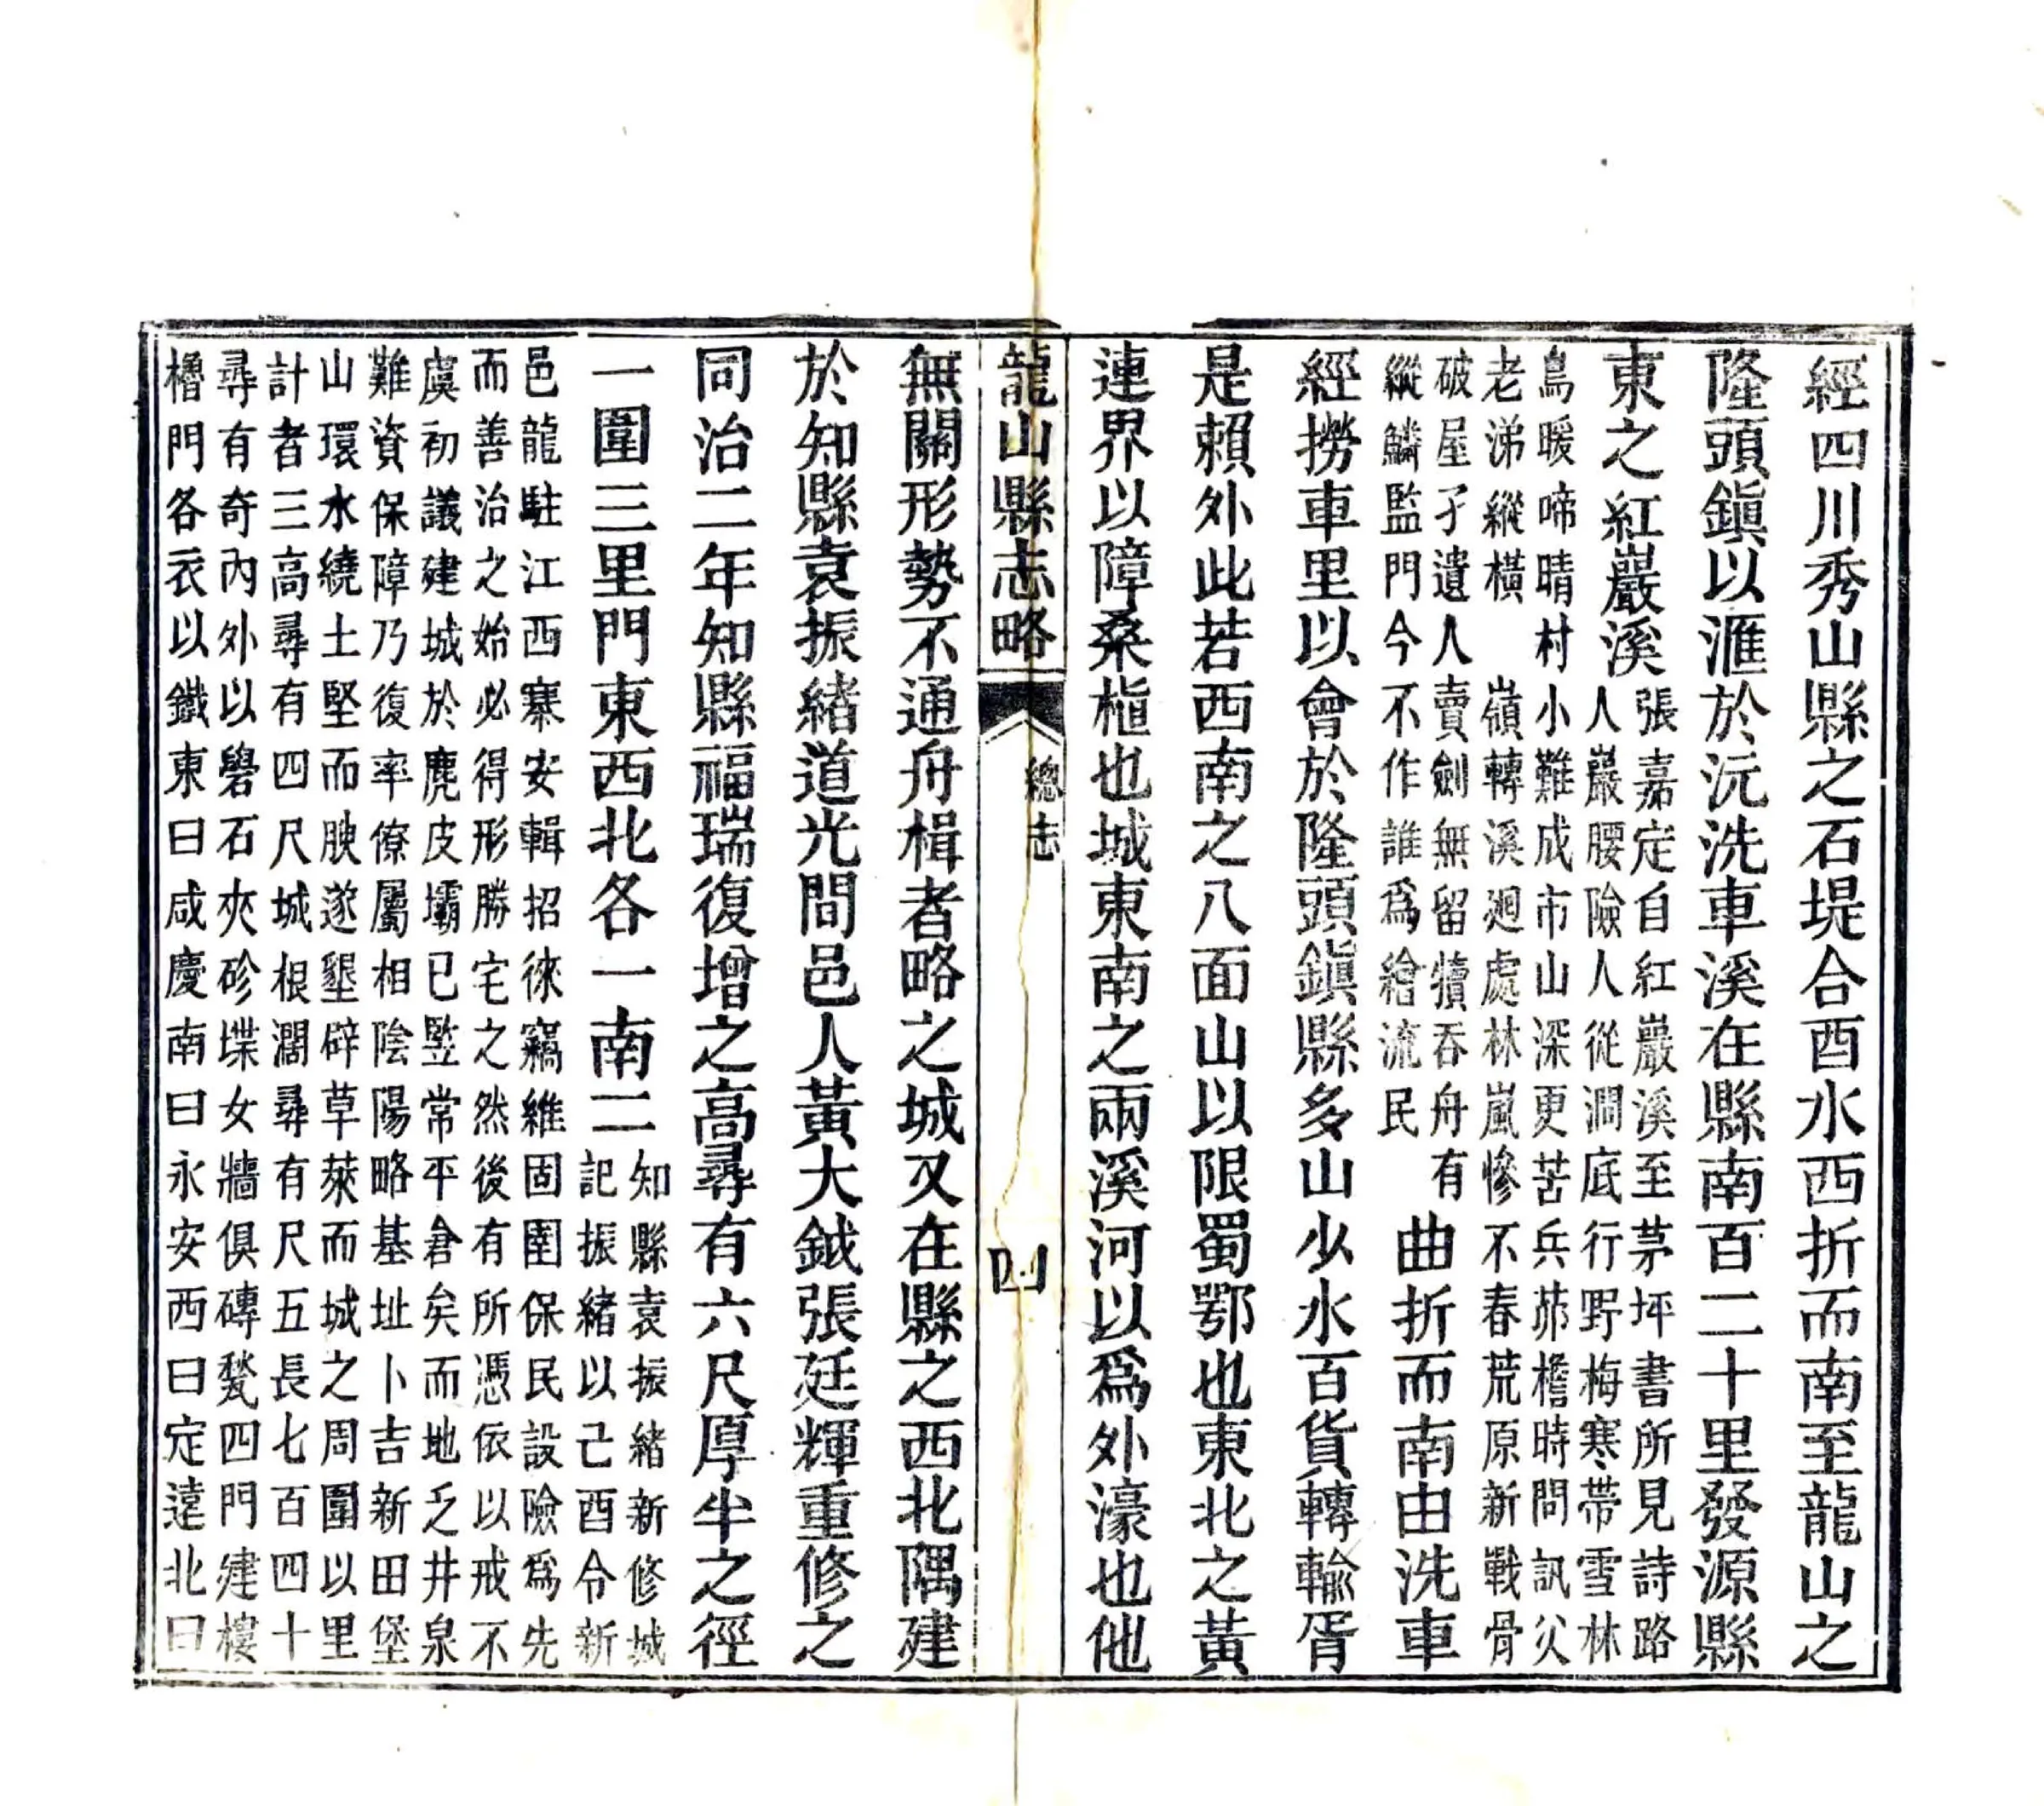 經四川秀山縣之石堤合酉水西折而南至龍山之
隆頭鎮以滙於沅洗車溪在縣南百二十里發源縣
東之紅巖溪
張嘉定自紅巖溪至茅坪書所見詩路
人巖腰險人從澗底行野梅寒帶雪林
鳥暖啼晴村小難成市山深更苦兵茆檐時問訊父
老涕縱橫　嶺轉溪迴處林嵐慘不春荒原新戰骨
破屋孑遺人賣劍無留犢吞舟有
縱鱗監門今不作誰爲繪流民
曲折而南由洗車
經撈車里以會於隆頭鎮縣多山少水百貨轉輸胥
是賴外此若西南之八面山以限蜀鄂也東北之黃
連界以障桑植也城東南之兩溪河以爲外濠也他
龍山縣志略
總志
四
無關形勢不通舟楫者略之城又在縣之西北隅建
於知縣袁振緒道光間邑人黃大鉞張廷輝重修之
同治二年知縣福瑞復增之高尋有六尺厚半之徑
一圍三里門東西北各一南二
知縣袁振緒新修城
記振緒以己酉令新
邑龍駐江西寨安輯招徠竊維固圉保民設險爲先
而善治之始必得形勝宅之然後有所憑依以戒不
虞初議建城於鹿皮壩已豎常平倉矣而地乏井泉
難資保障乃復率僚屬相陰陽略基址卜吉新田堡
山環水繞土堅而腴遂墾辟草萊而城之周圍以里
計者三高尋有四尺城根濶尋有尺五長七百四十
尋有奇內外以礐石夾砂堞女牆俱磚甃四門建樓
櫓門各衣以鐵東曰咸慶南曰永安西曰定遠北曰